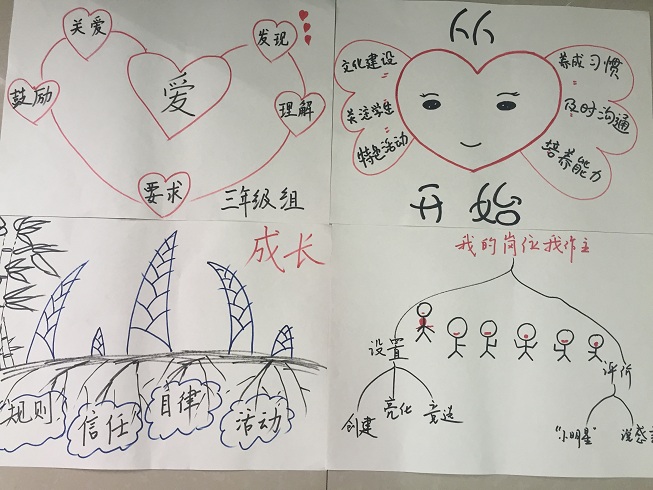 关爱
发现
鼓励
爱
理解
要求
三年级组
从
开始
文化建设
关注学生
特色活动
养成习惯
及时沟通
培养能力
成长
规则
信任
自律
活动
我的岗位我作主
设置
评价
创建
亮化
竞选
"小明星"
说感言